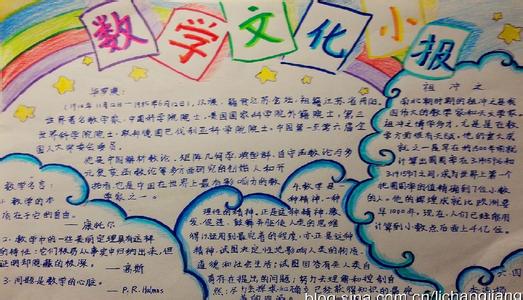 数学文化小报
华罗庚:
(1910年11月12日—1985年6月12日),汉族,籍贯江苏金坛,祖籍江苏省丹阳。
世界著名数学家,中国科学院院士,美国国家科学院外籍院士,第三
世界科学院院士,联邦德国巴伐利亚科学院院士,中国第一至第六届全
国人大常委会委员。
他是中国解析数论、矩阵几何学、典型群、自守函数论与多
元复变函数论等多方面研究的创始人和开
拓者,也是中国在世界上最有影响力的数
学家之一。
祖冲之
南北朝时期的祖冲之是我
国伟大的数学家和天文学家.
祖冲之博学多才,尤其是在数
学方面很有天赋,他的重大成
就之一是早在约1500年前就
计算出圆周率在3.1415926和
3.1415927之间,成为世界上第一个
把圆周率的值精确到7位小数
的人。他的辉煌成就比欧洲要
早1000年。现在,人们已经能用
计算机算到小数点后面上千亿位。
数学名言:
1. 数学的本
质在于它的自由。
— 康托尔
2. 数学中的一些美丽定理具有这样
的特性:它们极易从事实中归纳出来,但
证明却隐藏的极深。
—高斯
3. 问题是数学的心脏。
— P.R.Halmos
4. 数学是一
种精神,一种
理性的精神。正是这种精神,激
发、促进、鼓舞并驱使人类的思维
得以运用到最完善的程度,亦正是这种
精神,试图决定性地影响人类的物质、
道德和社会生活;试图回答有关人类自
身存在提出的问题;努力去理解和控制自
blog.sina.com.cn/lichangliang